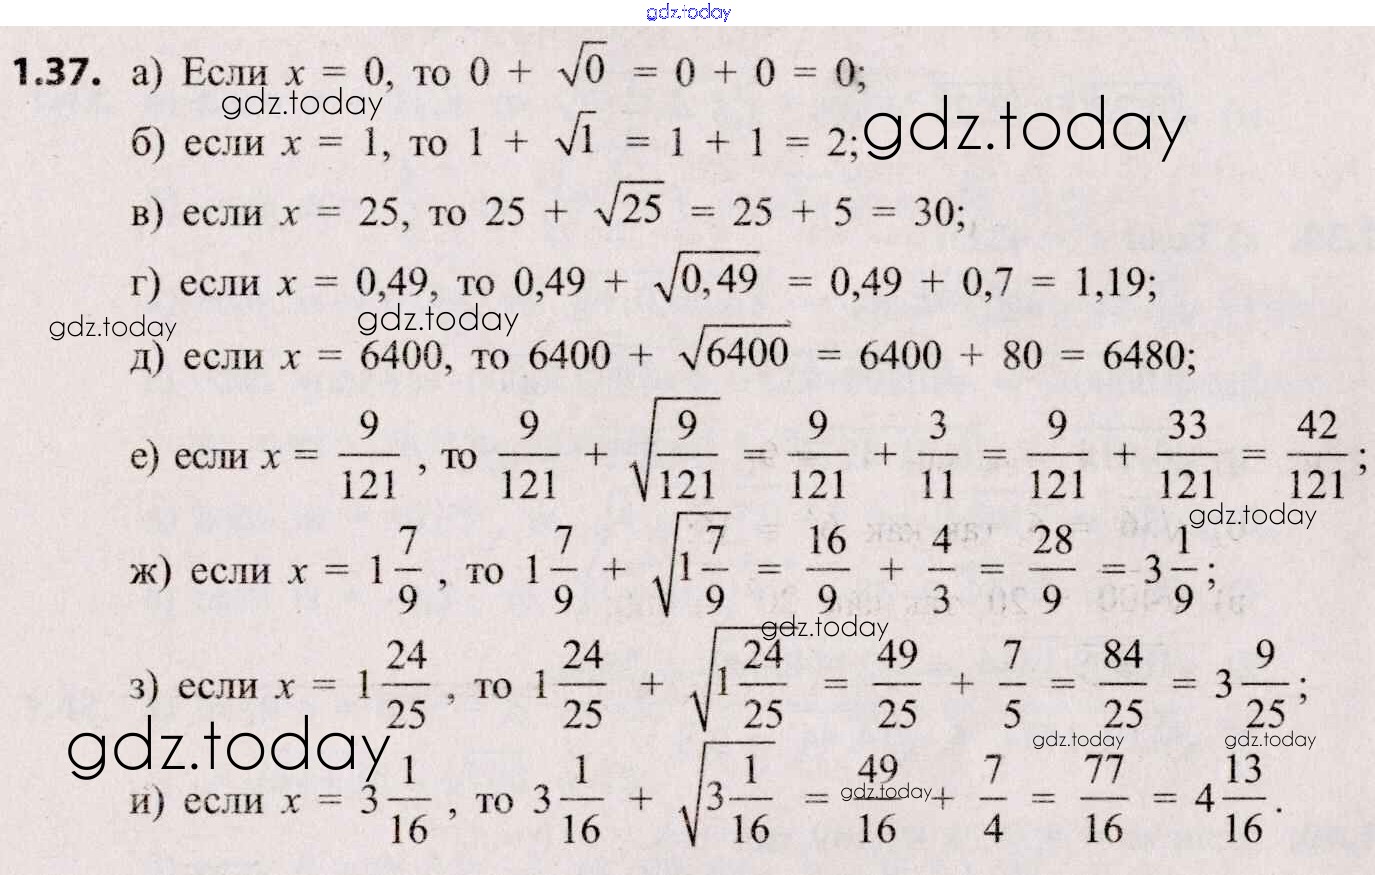 gdz.today
1.37. а) Если x = 0, то 0 + √0 = 0 + 0 = 0;
gdz.today
б) если x = 1, то 1 + √1 = 1 + 1 = 2;
gdz.today
в) если x = 25, то 25 + √25 = 25 + 5 = 30;
г) если x = 0,49, то 0,49 + √0,49 = 0,49 + 0,7 = 1,19;
gdz.today gdz.today
д) если x = 6400, то 6400 + √6400 = 6400 + 80 = 6480;
е) если x = 9/121, то 9/121 + √(9/121) = 9/121 + 3/11 = 9/121 + 33/121 = 42/121;
gdz.today
ж) если x = 1 7/9, то 1 7/9 + √(1 7/9) = 16/9 + 4/3 = 28/9 = 3 1/9;
gdz.today
з) если x = 1 24/25, то 1 24/25 + √(1 24/25) = 49/25 + 7/5 = 84/25 = 3 9/25;
gdz.today gdz.today gdz.today
и) если x = 3 1/16, то 3 1/16 + √(3 1/16) = 49/16 + 7/4 = 77/16 = 4 13/16.
gdz.today